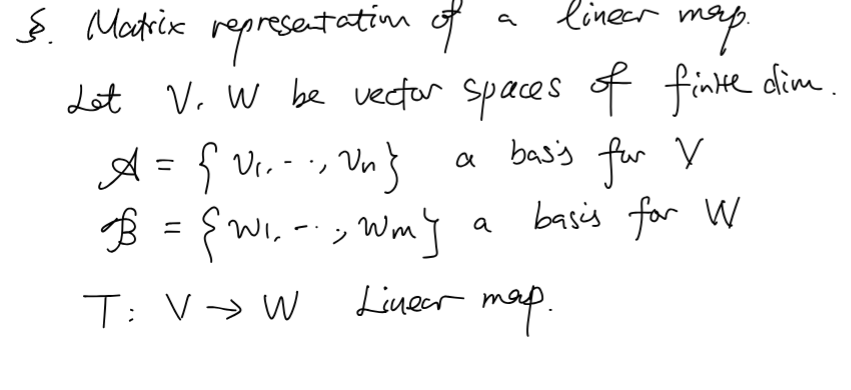 §. Matrix representation of a linear map.
Let V, W be vector spaces of finite dim.
𝒜 = { v₁, ..., vₙ } a basis for V
ℬ = { w₁, ..., wₘ } a basis for W
T: V → W Linear map.